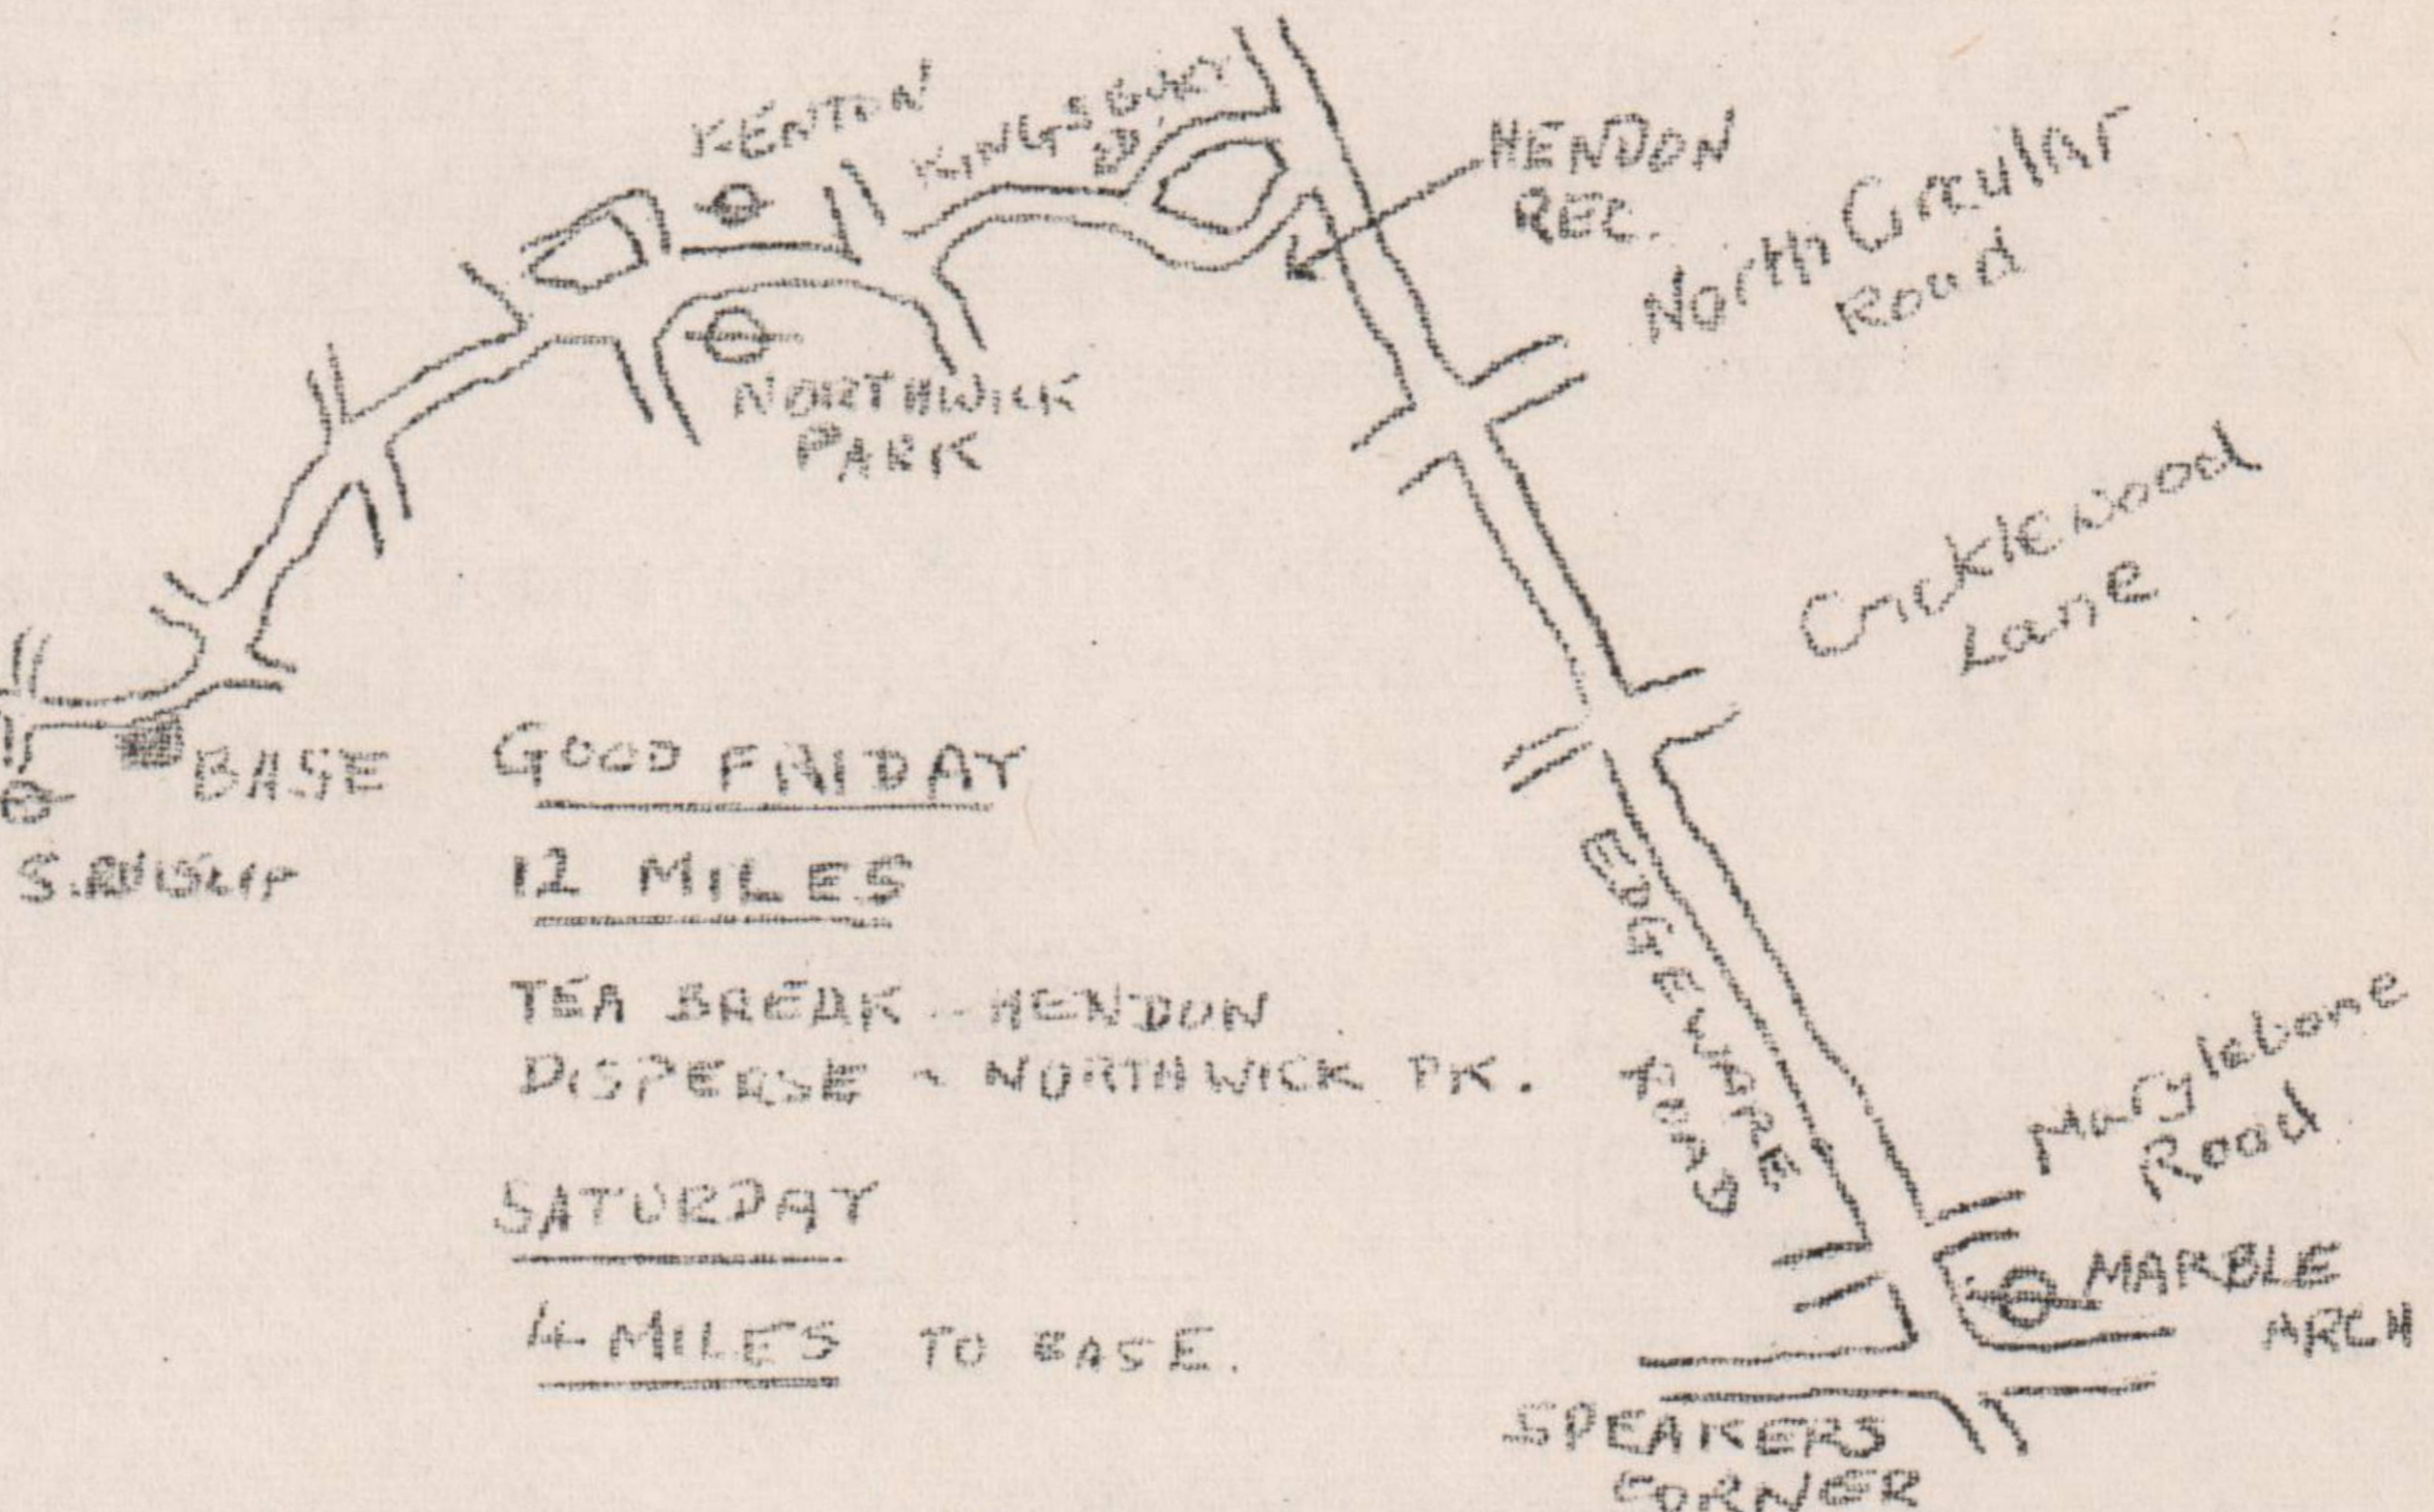 KENTON
KINGSBURY
RD.
HENDON
REC.
North Circular
Road
NORTHWICK
PARK
Cricklewood
Lane
BASE
S. RUISLIP
GOOD FRIDAY
12 MILES
TEA BREAK - HENDON
DISPERSE - NORTHWICK PK.
SATURDAY
4 MILES TO BASE.
EDGEWARE
ROAD
Marylebone
Road
MARBLE
ARCH
SPEAKERS
CORNER